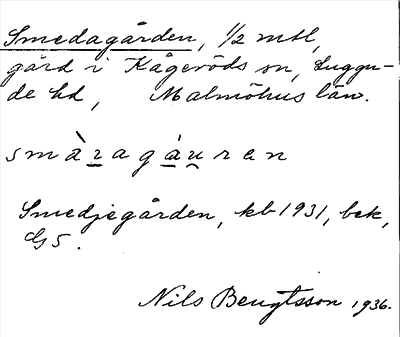 Smedagården, 1/2 mtl,
gård i Kågeröds sn, Luggu-
de hd, Malmöhus län.
smàragáuren
Smedjegården, kb 1931, bek,
G 5.
Nils Bengtsson 1936.